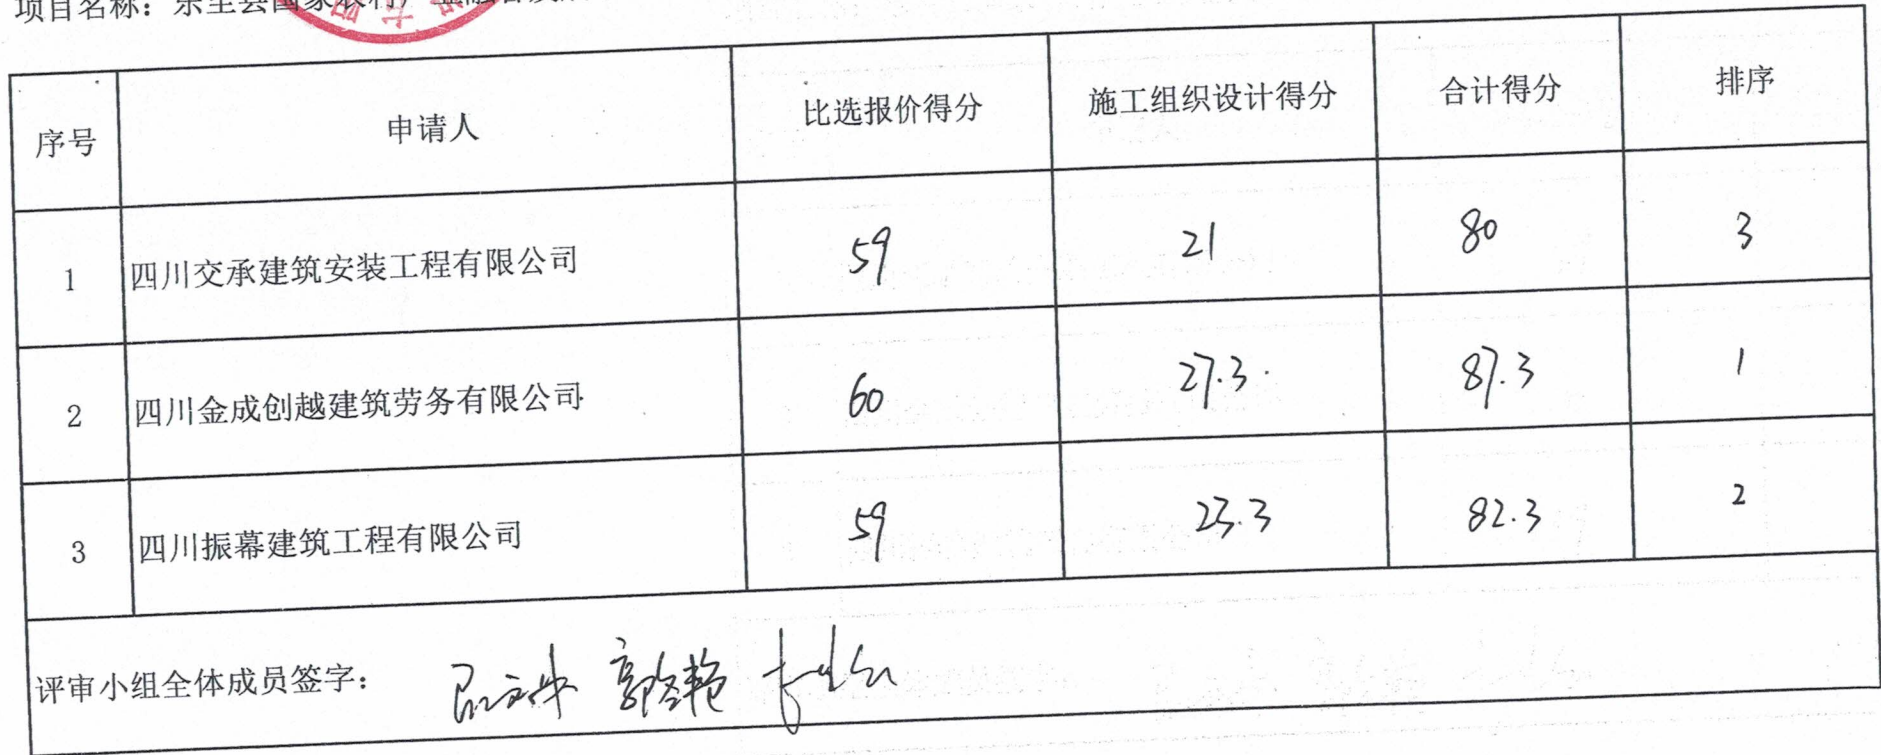 项目名称：乐至县国家农村产业融合发
序号 申请人 比选报价得分 施工组织设计得分 合计得分 排序
1 四川交承建筑安装工程有限公司 59 21 80 3
2 四川金成创越建筑劳务有限公司 60 27.3 87.3 1
3 四川振幕建筑工程有限公司 59 23.3 82.3 2
评审小组全体成员签字：